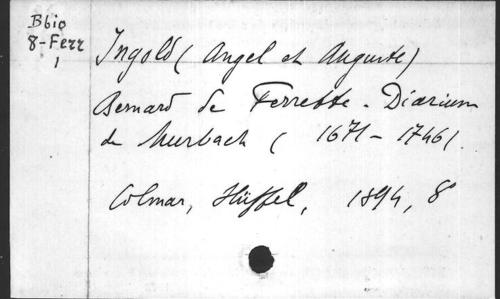 Bbio
8-Ferr
1
Ingold (Angel et Auguste)
Bernard de Ferrette. Diarium
de Murbach (1671-1746).
Colmar, Hüffel, 1894, 8°